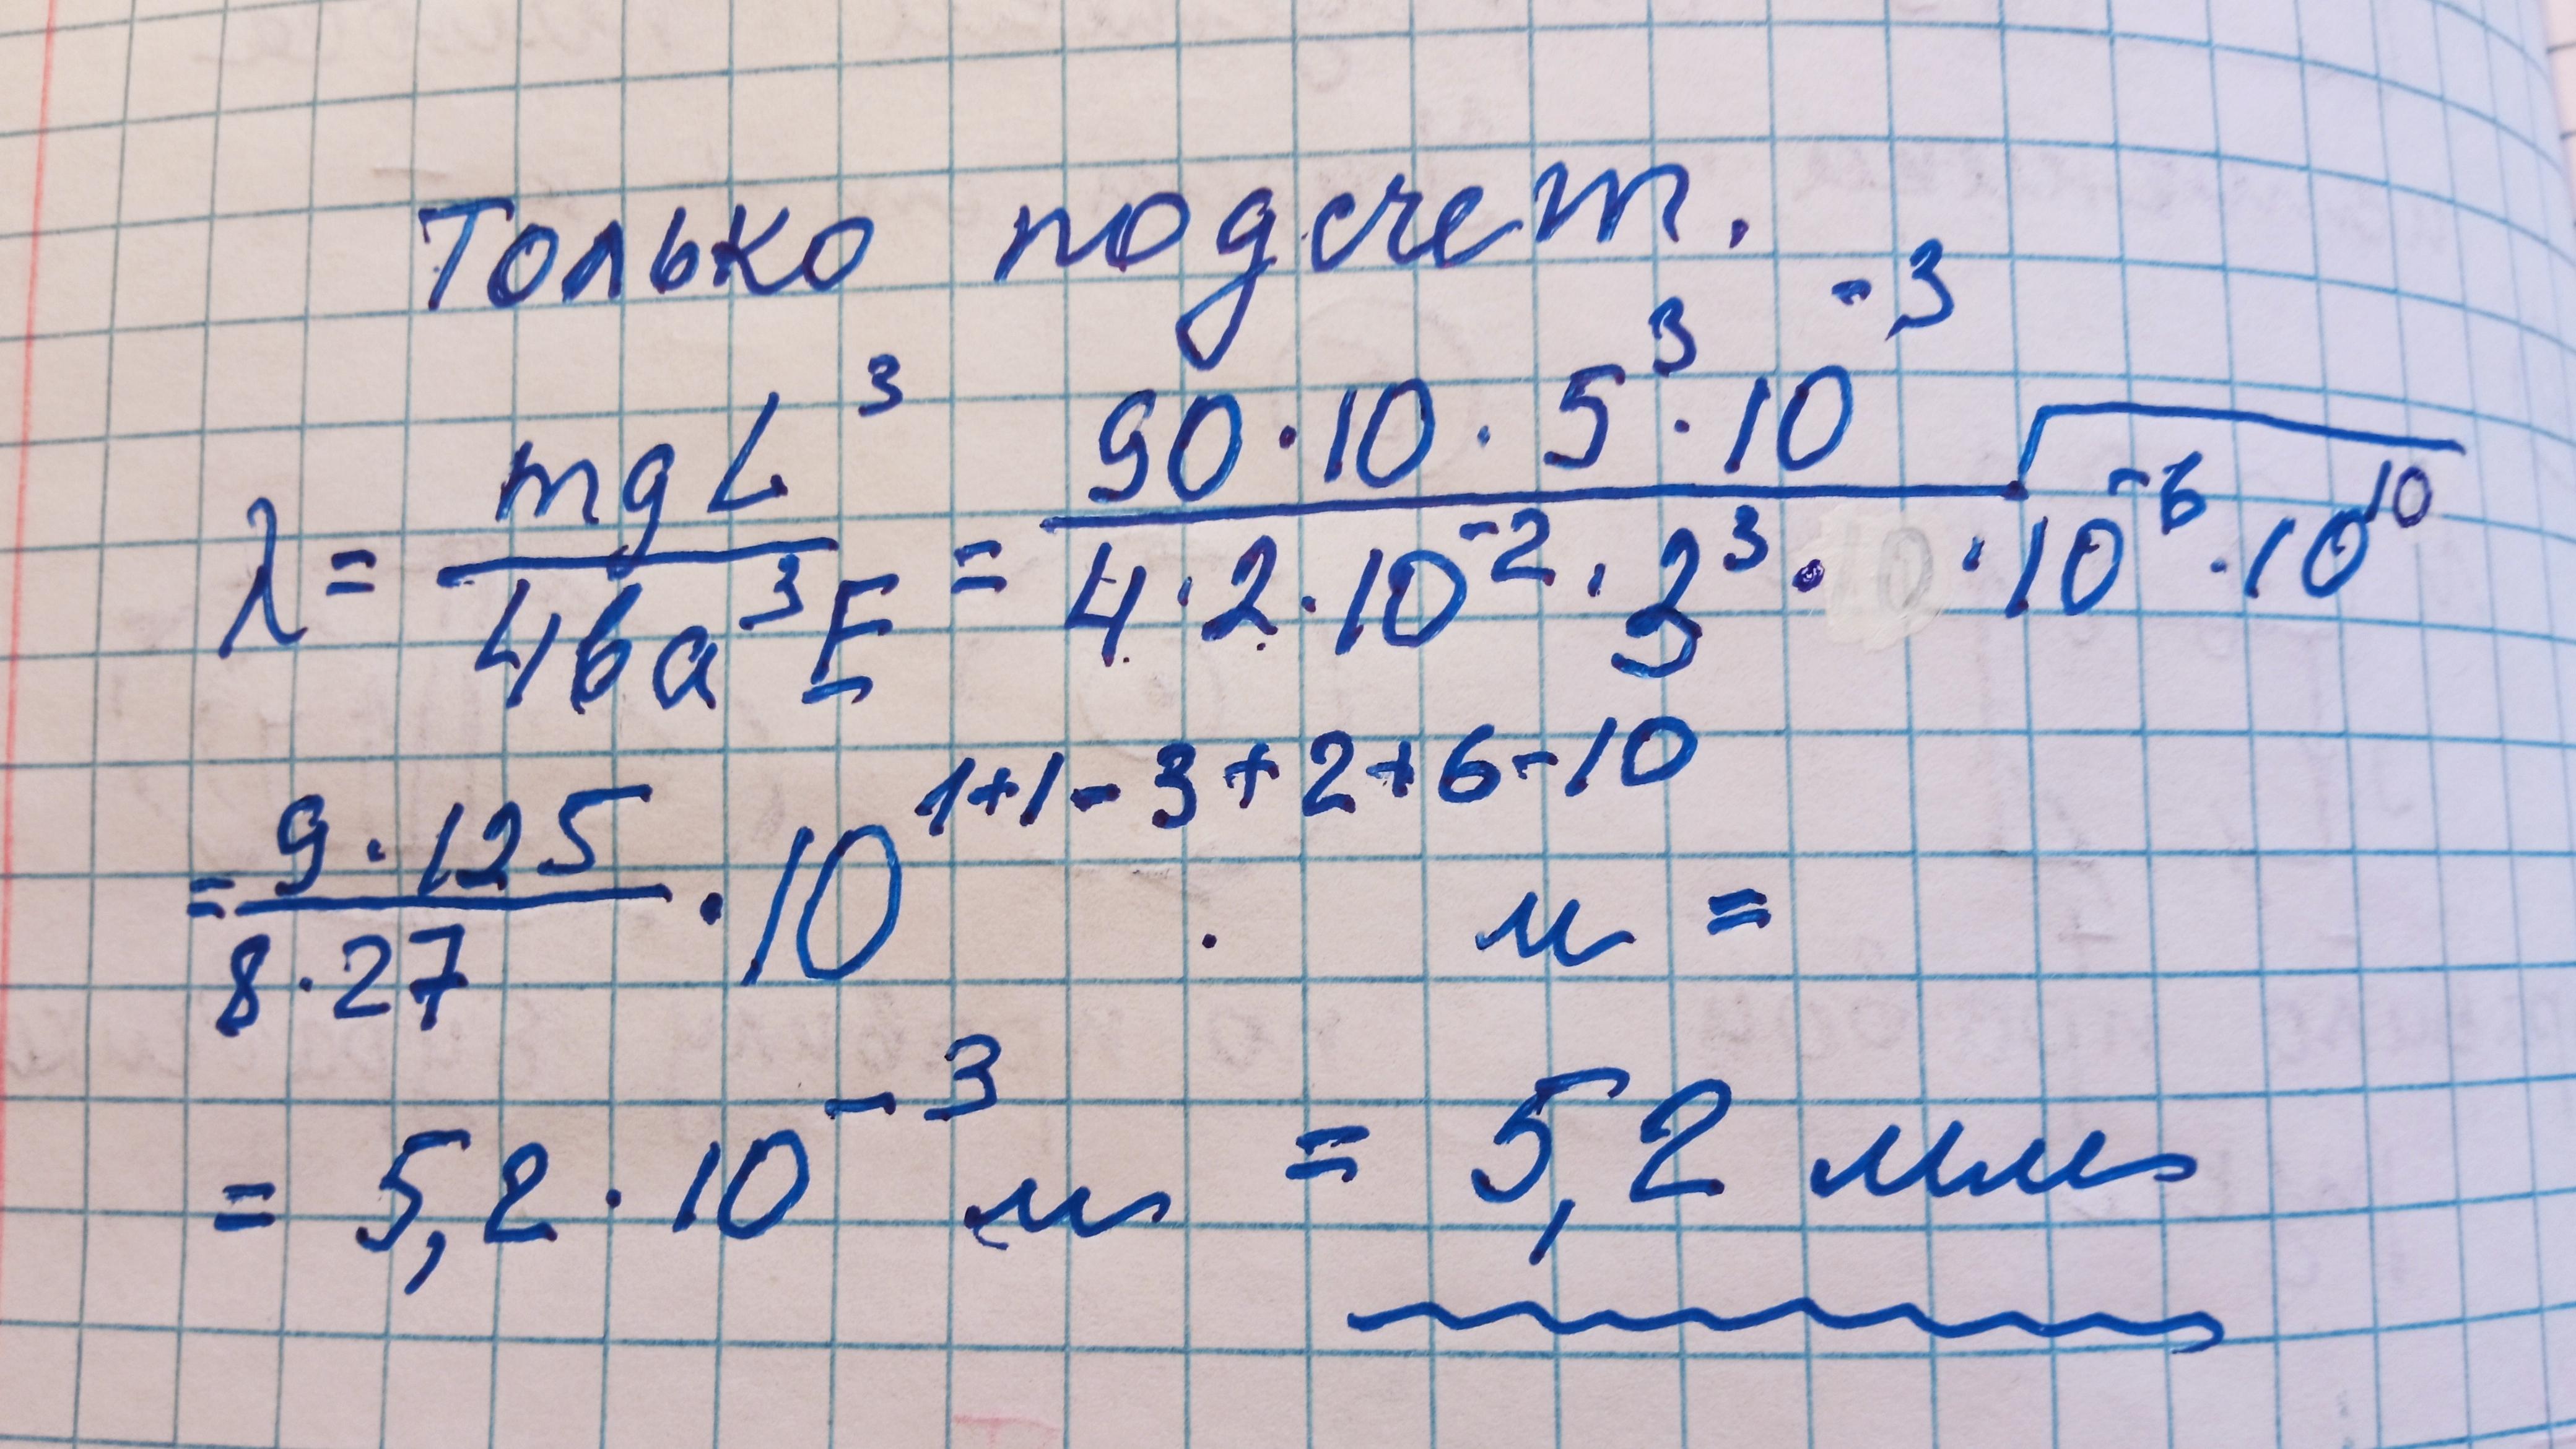 Только подсчет.
λ = mgL³ / 4ba³E = 90·10·5³·10⁻³ / 4·2·10⁻²·3³··10⁻⁶·10¹⁰
= 9·125 / 8·27 · 10¹⁺¹⁻³⁺²⁺⁶⁻¹⁰ . м =
= 5,2·10⁻³ м = 5,2 мм